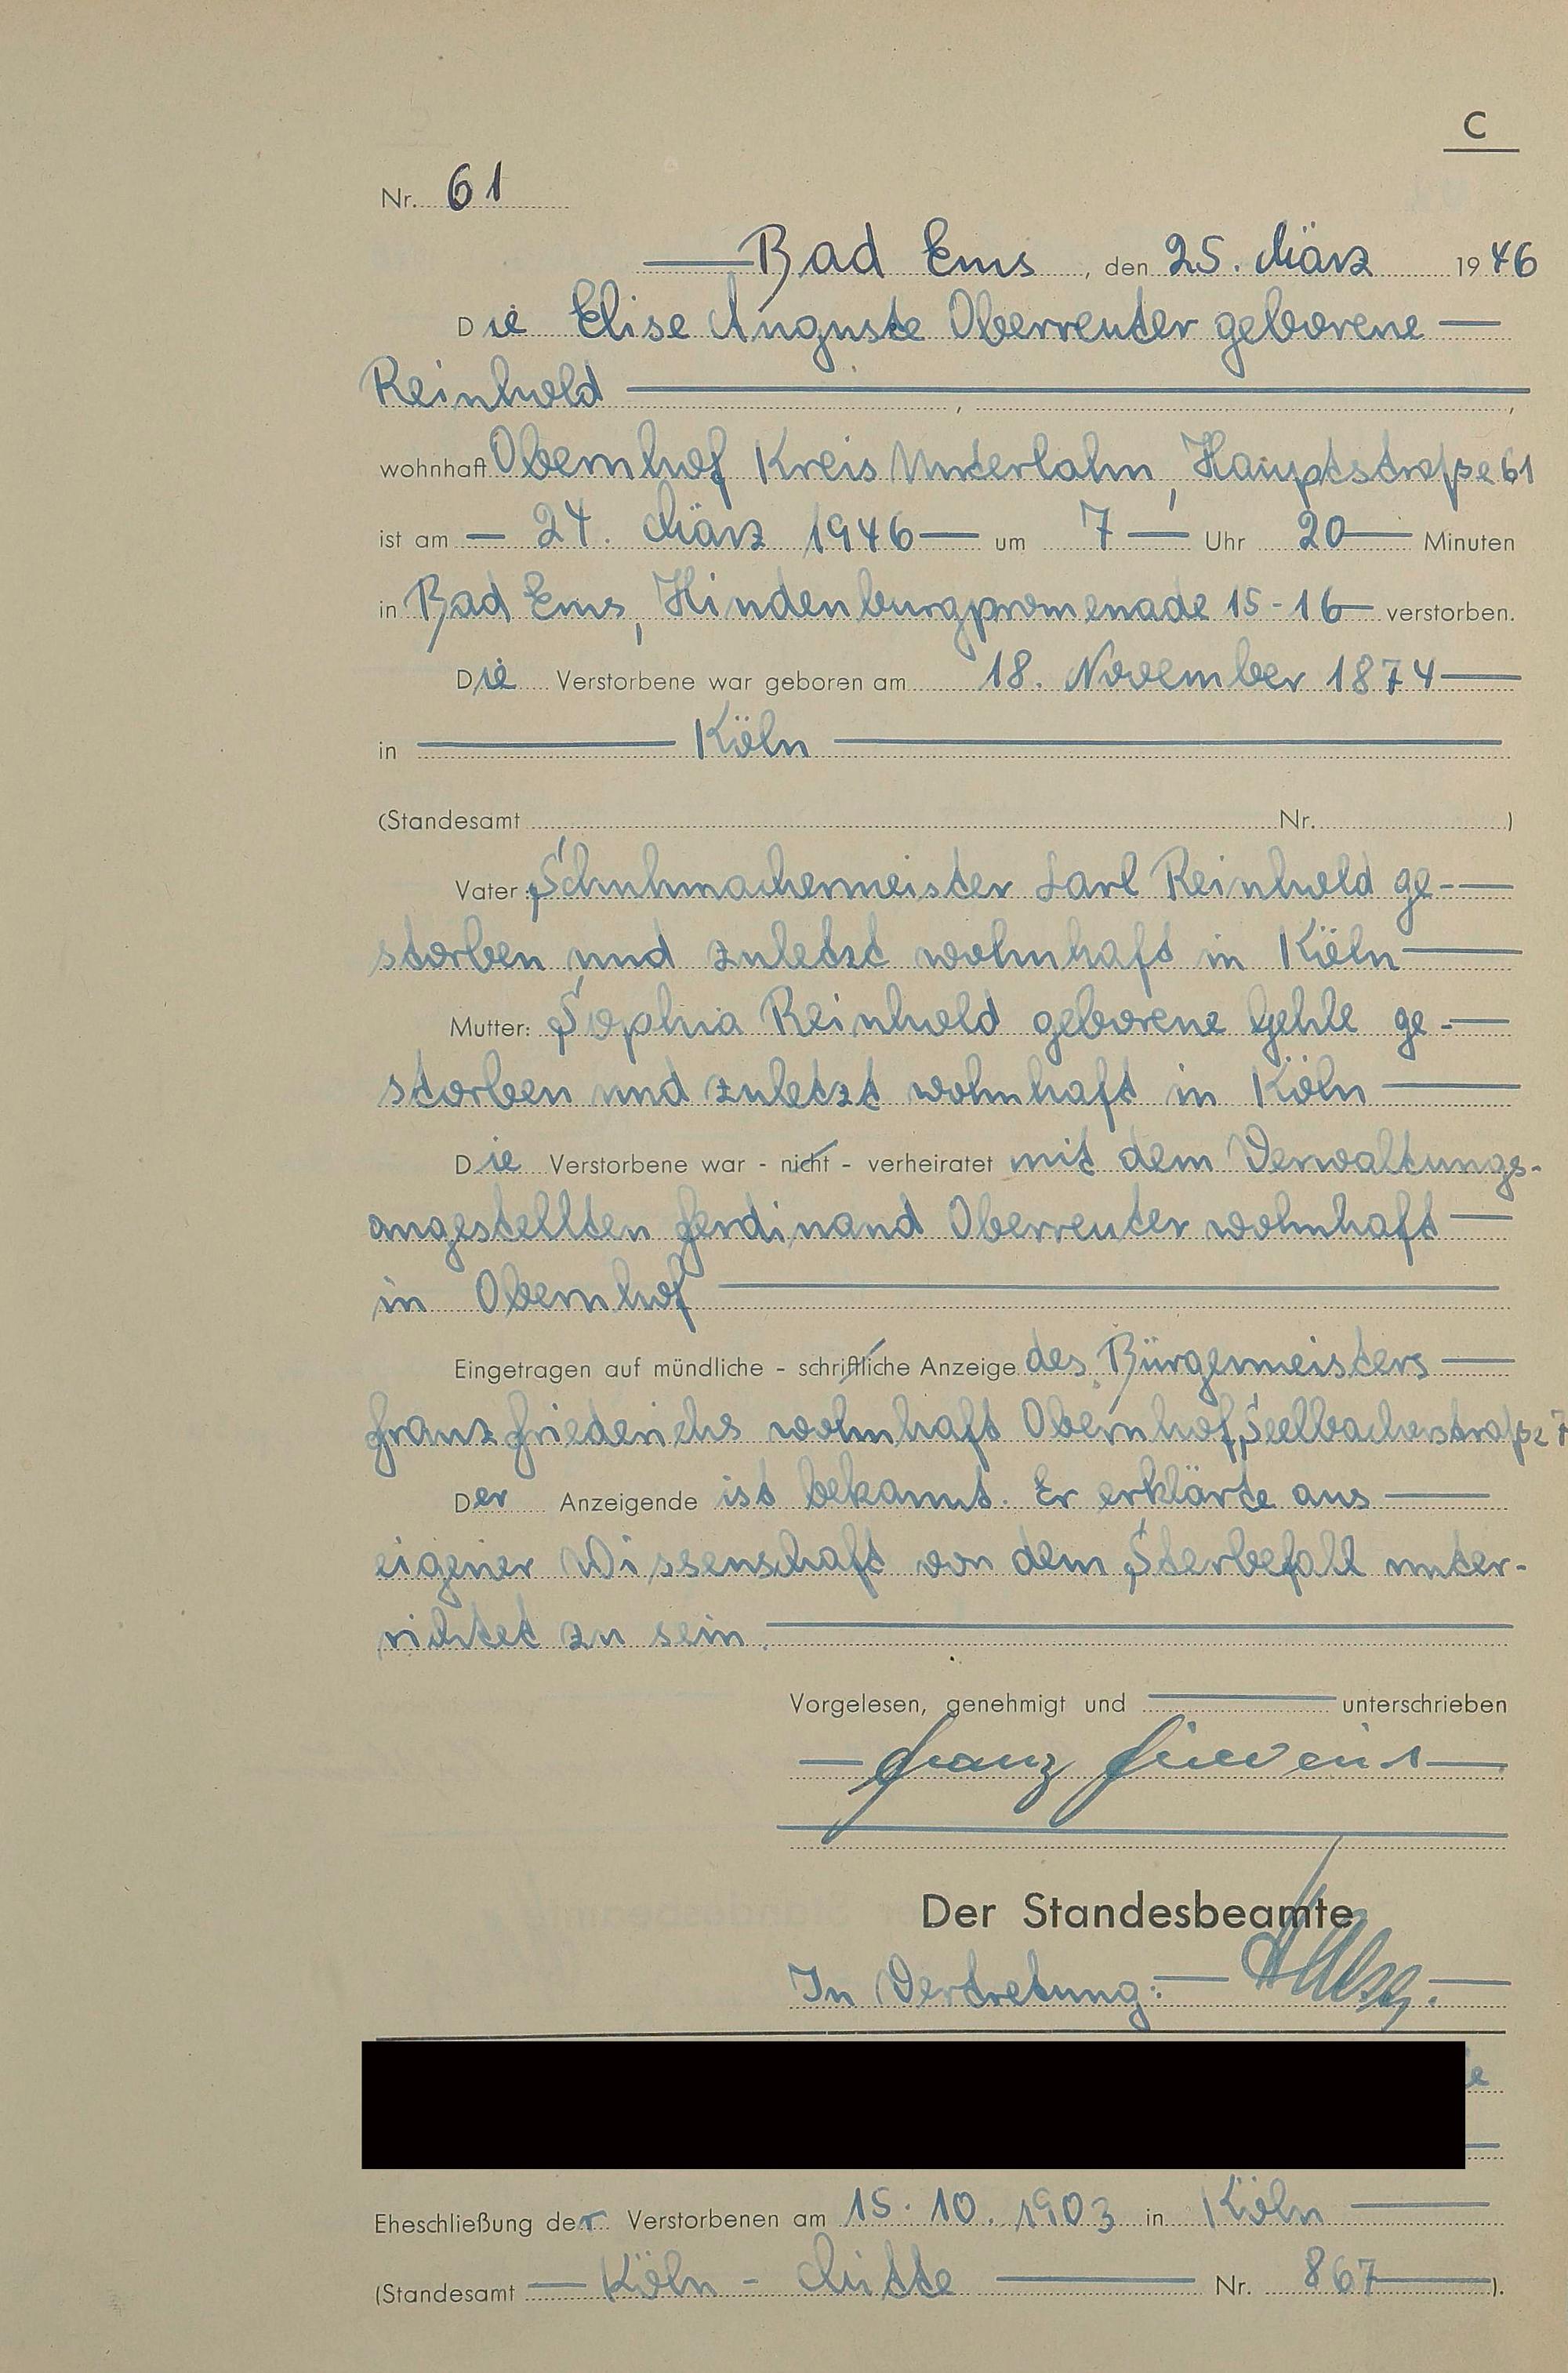 C
Nr. 61
Bad Ems, den 25. März 1946
Die Elise Auguste Oberreuter geborene
Reinhold
wohnhaft Obernhof Kreis Unterlahn, Hauptstraße 61
ist am 24. März 1946 um 7 Uhr 20 Minuten
in Bad Ems, Hindenburgpromenade 15-16 verstorben.
Die Verstorbene war geboren am 18. November 1874
in Köln
(Standesamt Nr. )
Vater: Schuhmachermeister Carl Reinhold ge-
storben und zuletzt wohnhaft in Köln
Mutter: Sophia Reinhold geborene Gehle ge-
storben und zuletzt wohnhaft in Köln
Die Verstorbene war - nicht - verheiratet mit dem Verwaltungs-
angestellten Ferdinand Oberreuter wohnhaft
in Obernhof
Eingetragen auf mündliche - schriftliche Anzeige des Bürgermeisters
Franz Friederichs wohnhaft Obernhof, Seelbacherstraße 7
Der Anzeigende ist bekannt. Er erklärte aus
eigener Wissenschaft von dem Sterbefall unter-
richtet zu sein.
Vorgelesen, genehmigt und unterschrieben
Franz
Der Standesbeamte
In Vertretung:
Eheschließung der Verstorbenen am 15.10.1903 in Köln
(Standesamt Köln - Mitte Nr. 867).